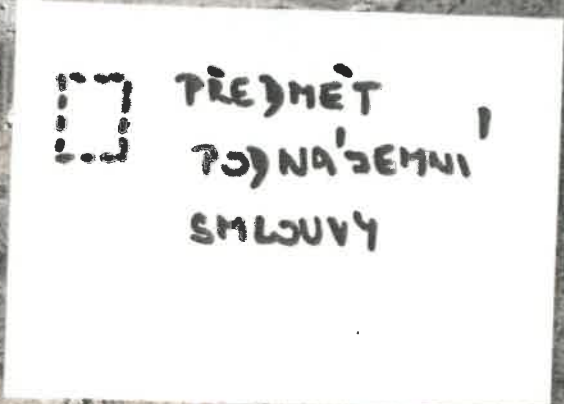 PŘEDMĚT
PODNÁJEMNÍ
SMLOUVY